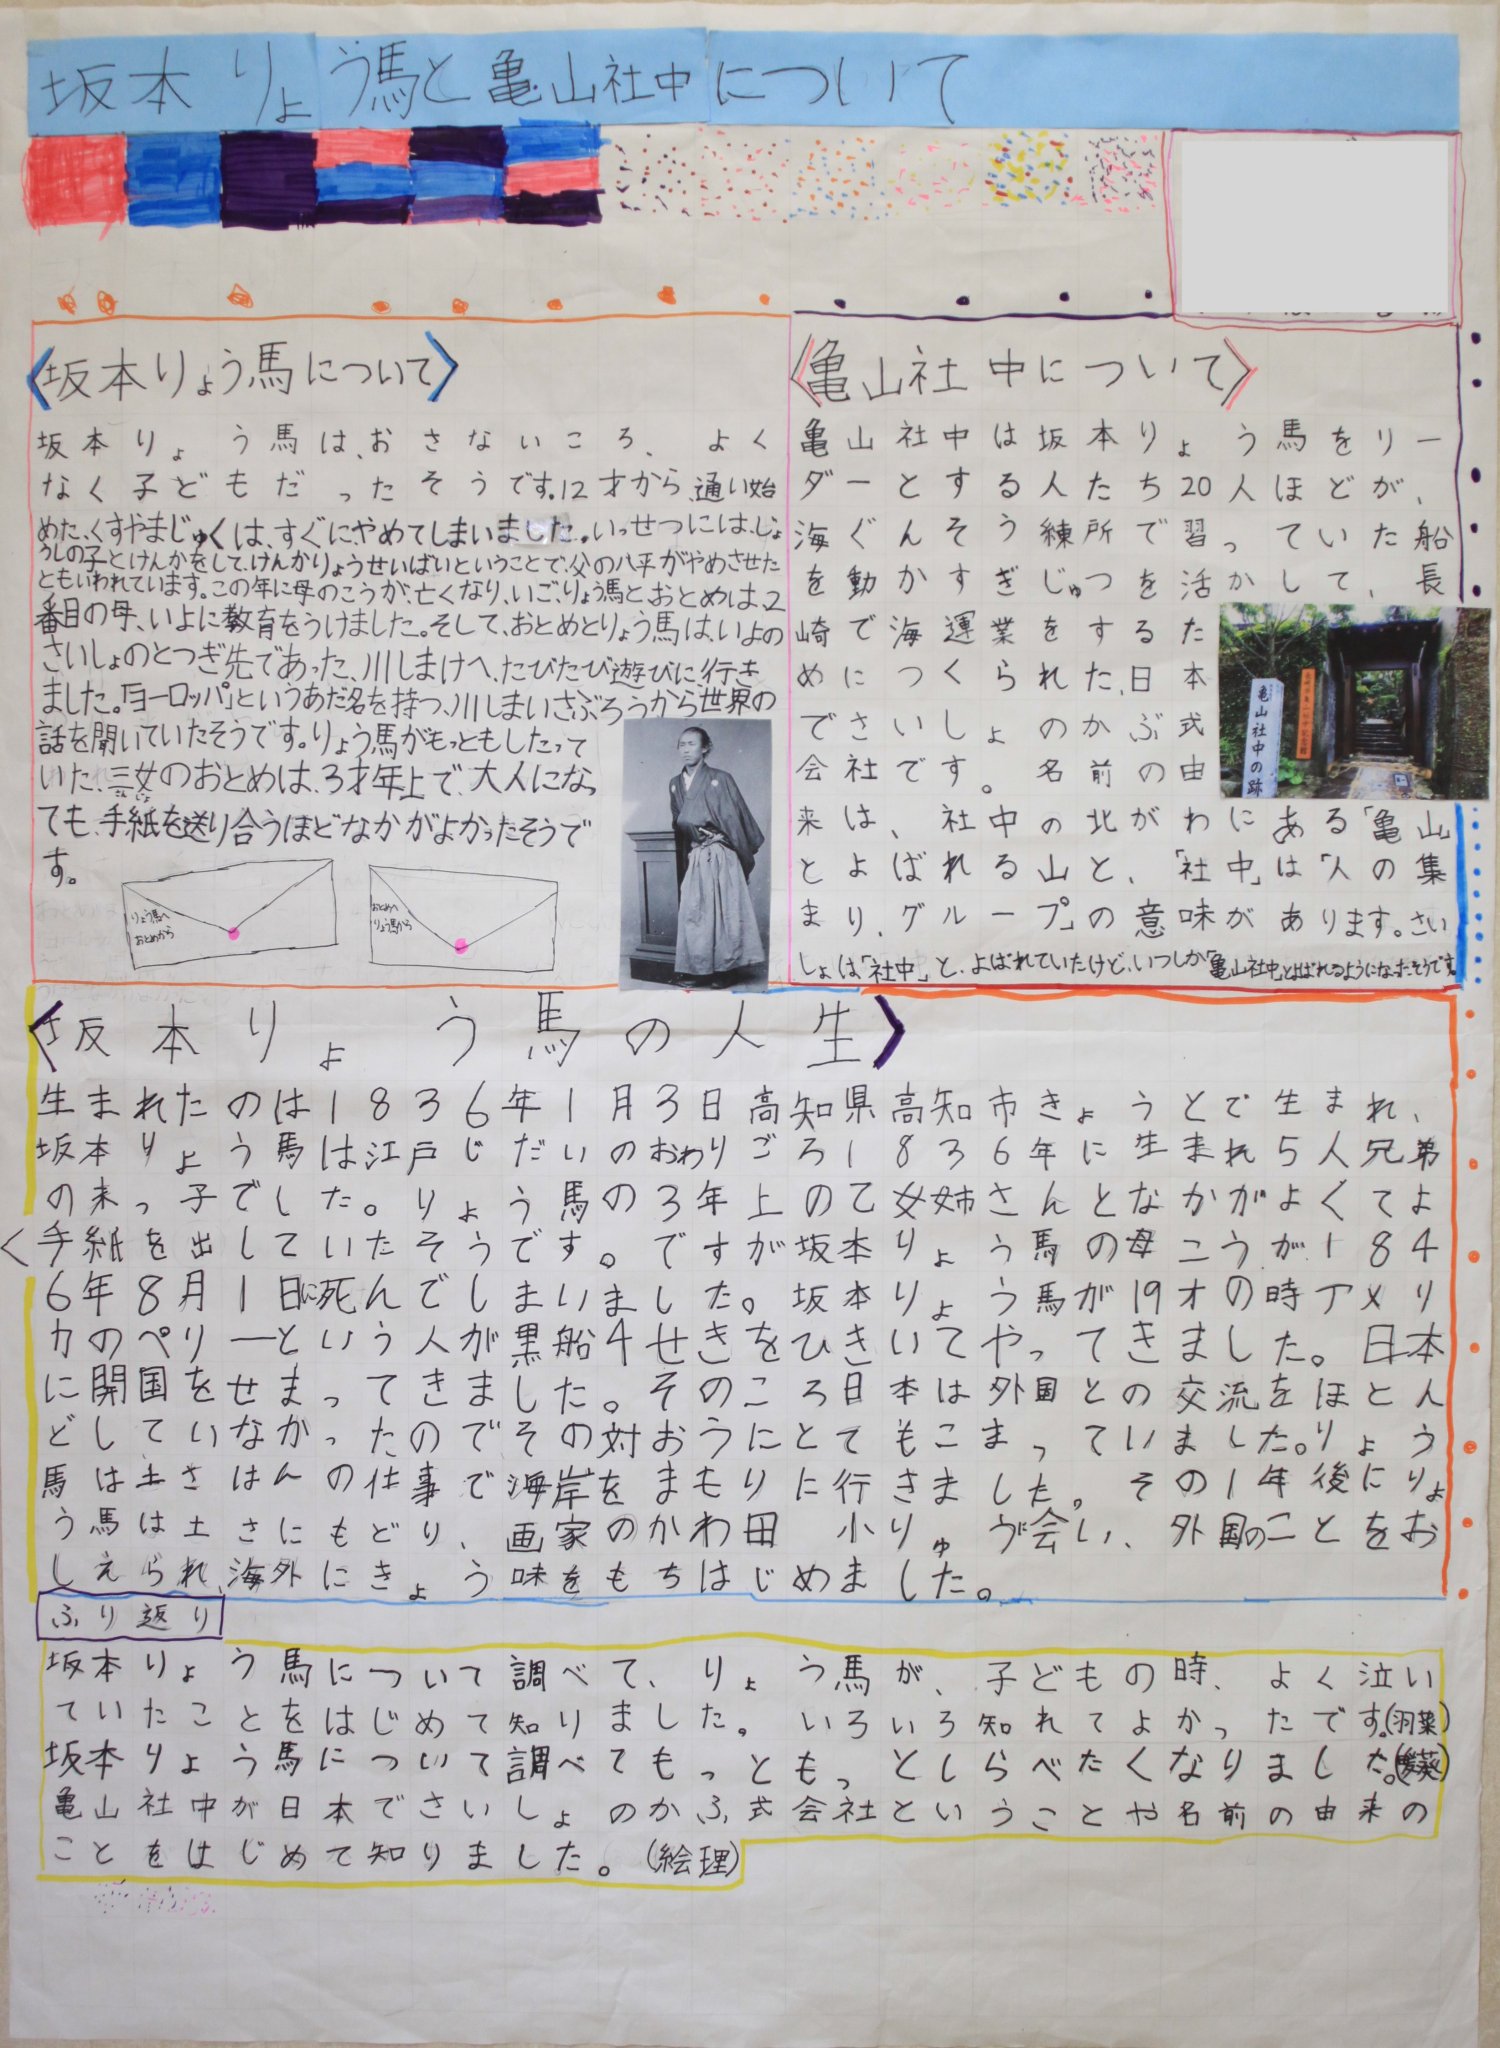 坂本りょう馬と亀山社中について
〈坂本りょう馬について〉
坂本りょう馬は、おさないころ、よく
なく子どもだったそうです。12才から、通い始
めた、くすやまじゅくは、すぐにやめてしまいました。いっせつには、じょ
うしの子とけんかをして、けんかりょうせいばいということで、父の八平がやめさせた
ともいわれています。この年に母のこうが、亡くなり、いご、りょう馬とおとめは、2
番目の母、いよに教育をうけました。そして、おとめとりょう馬は、いよの
さいしょのとつぎ先であった、川しまけへ、たびたび遊びに、行き
ました。「ヨーロッパ」というあだ名を持つ、川しまいさぶろうから世界の
話を聞いていたそうです。りょう馬がもっともしたって
いた、三女のおとめは、3才年上で、大人になっ
さんじょ
ても、手紙を送り合うほどなかがよかったそうで
す。
りょう馬へ
おとめから
おとめへ
りょう馬から
〈亀山社中について〉
亀山社中は坂本りょう馬をリー
ダーとする人たち20人ほどが、
海ぐんそう練所で習っていた船
を動かすぎじゅつを活かして、長
崎で海運業をするた
めにつくられた、日本
でさいしょのかぶ式
会社です。名前の由
来は、社中の北がわにある「亀山」
とよばれる山と、「社中」は「人の集
まり、グループ」の意味があります。さい
しょは「社中」と、よばれていたけど、いつしか「亀山社中」とよばれるようになったそうです。
亀山社中の跡
〈坂本りょう馬の人生〉
生まれたのは1836年1月3日高知県高知市きょうとで生まれ、
坂本りょう馬は江戸じだいのおわりごろ1836年に生まれ5人兄弟
の末っ子でした。りょう馬の3年上の乙女姉さんとなかがよくてよ
く手紙を出していたそうです。ですが坂本りょう馬の母こうが184
6年8月1日に死んでしまいました。坂本りょう馬が19才の時アメリ
カのペリーという人が黒船4せきをひきいてやってきました。日本
に開国をせまってきました。そのころ日本は外国との交流をほとん
どしていなかったのでその対おうにとてもこまっていました。りょう
馬は土さはんの仕事で海岸をまもりに行きました。その1年後にりょ
う馬は土さにもどり、画家のかわ田小りゅうが会い、外国のことをお
しえられ、海外にきょう味をもちはじめました。
ふり返り
坂本りょう馬について調べて、りょう馬が、子どもの時、よく泣い
ていたことをはじめて知りました。いろいろ知れてよかったです。(羽菜)
坂本りょう馬について調べてもっともっとしらべたくなりました。
亀山社中が日本でさいしょのかぶ式会社ということや名前の由来の
ことをはじめて知りました。(絵理)